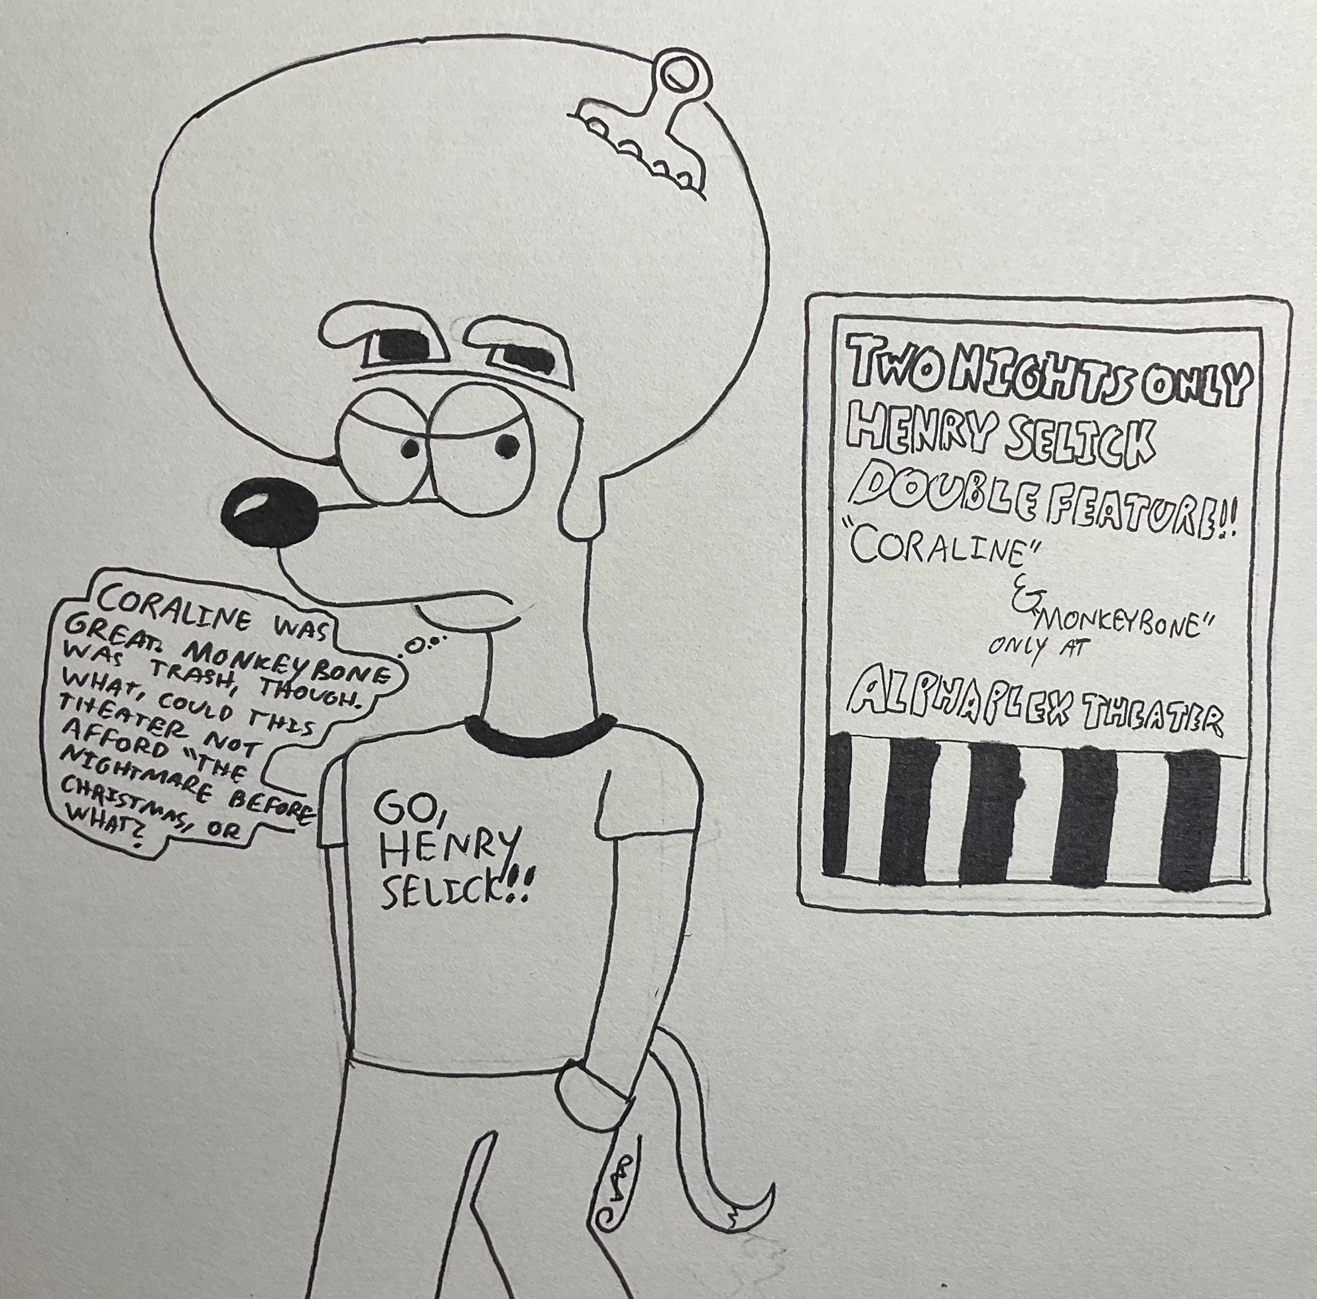 TWO NIGHTS ONLY
HENRY SELICK
DOUBLE FEATURE!!
"CORALINE"
&
"MONKEYBONE"
ONLY AT
ALPHAPLEX THEATER
CORALINE WAS
GREAT. MONKEYBONE
WAS TRASH, THOUGH.
WHAT, COULD THIS
THEATER NOT
AFFORD "THE
NIGHTMARE BEFORE
CHRISTMAS, OR
WHAT?
GO,
HENRY
SELICK!!